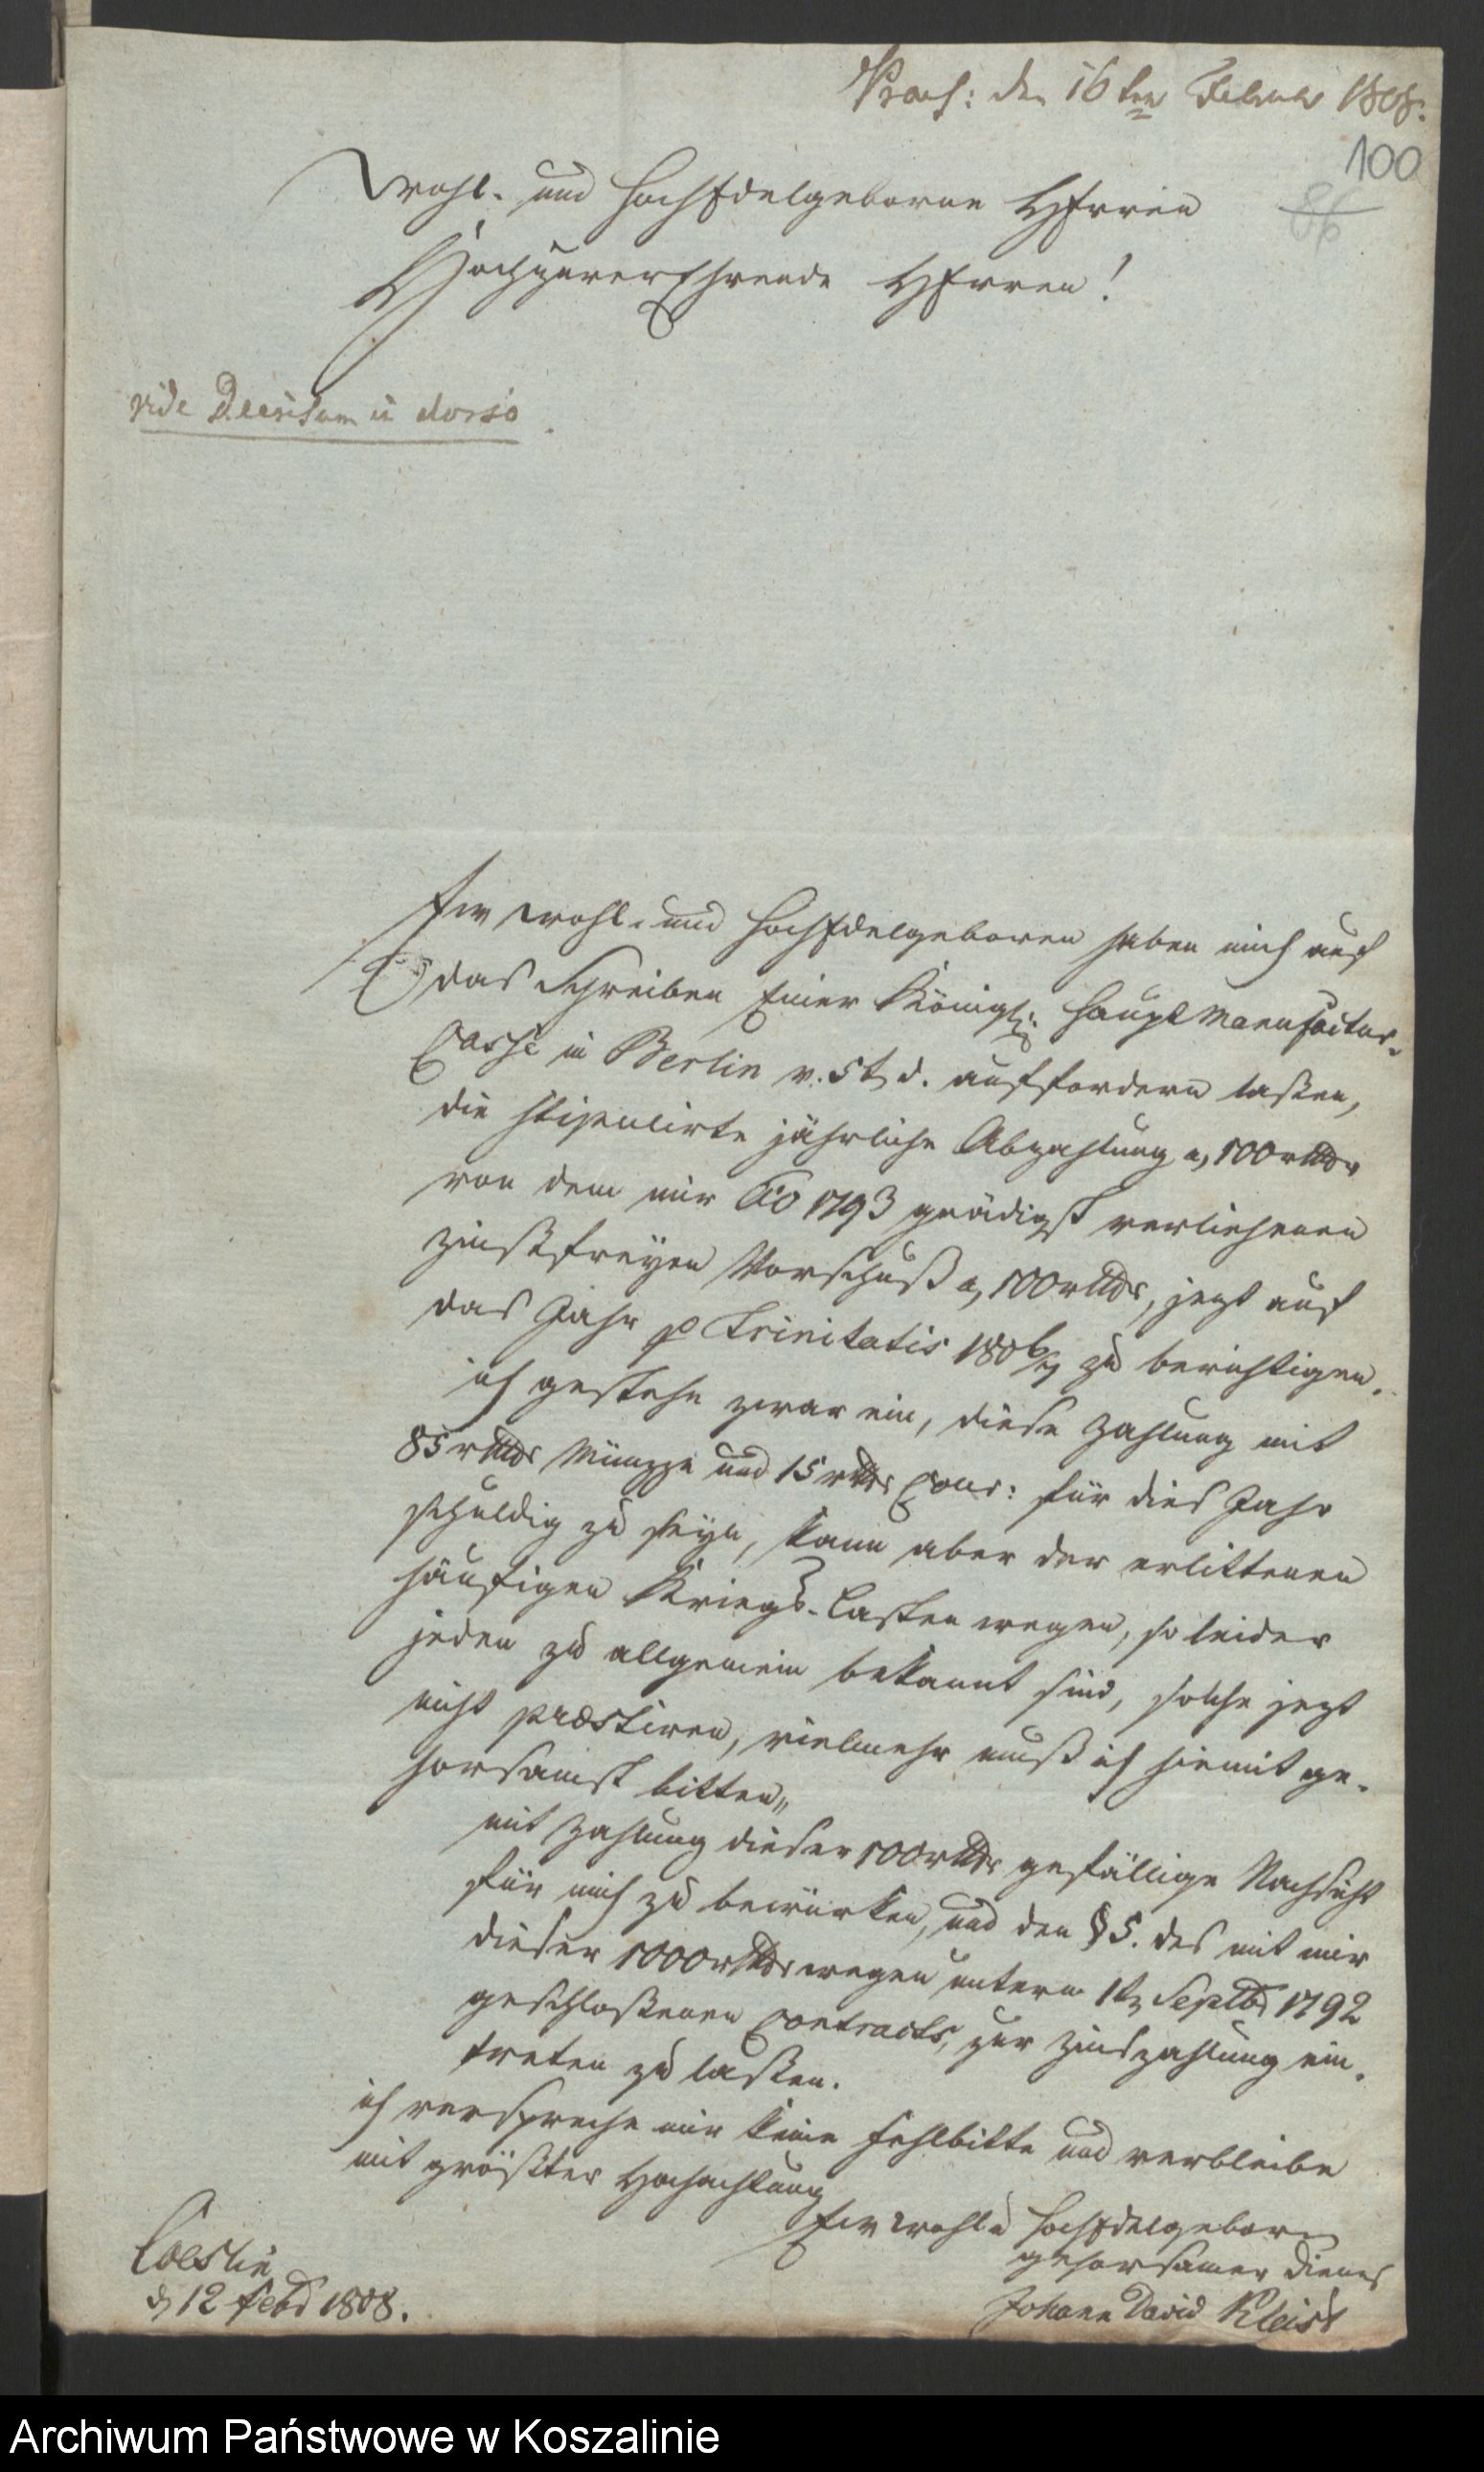 Praes: den 16ten Februar 1808.
100
Wohl- und HochEdelgeborne HErren
HochzuverEhrende HErren!
vide Decisum in dorso
Ew Wohl- und HochEdelgeboren haben mich auf
das Schreiben Einer Königl: Haupt Manufactur-
Casse in Berlin v. 5t d. auffordern laßen,
die stipulirte jährliche Abzahlung a, 100 rthlr
von dem mir Ao 1793 gnädigst verliehenen
zinßfreyen Vorschuß a, 1000 rthlr, jezt auf
das Jahr p Trinitatis 180 6/7 zu berichtigen.
ich gestehe zwar ein, diese Zahlung mit
85 rthlr Müntze und 15 rthlr Cour: für dies Jahr
schuldig zu seyn, kann aber der erlittenen
häufigen Kriegs-Lasten wegen, so leider
jeden zu allgemein bekannt sind, solche jezt
nicht praestiren, vielmehr muß ich hiemit ge-
horsamst bitten,,
mit Zahlung dieser 100 rthlr gefällige Nachsicht
für mich zu bewürken, und den § 5. des mit mir
dieser 1000 rthlr wegen unterm 1t Septbr 1792
geschloßenen Contracts, zur Zinszahlung ein-
treten zu laßen.
ich verspreche mir keine Fehlbitte und verbleibe
mit größter Hochachtung
Ew Wohl u HochEdelgeborn
gehorsamer Diener
Johann David Kleist
Coeslin
d 12 Febr 1808.
Archiwum Państwowe w Koszalinie